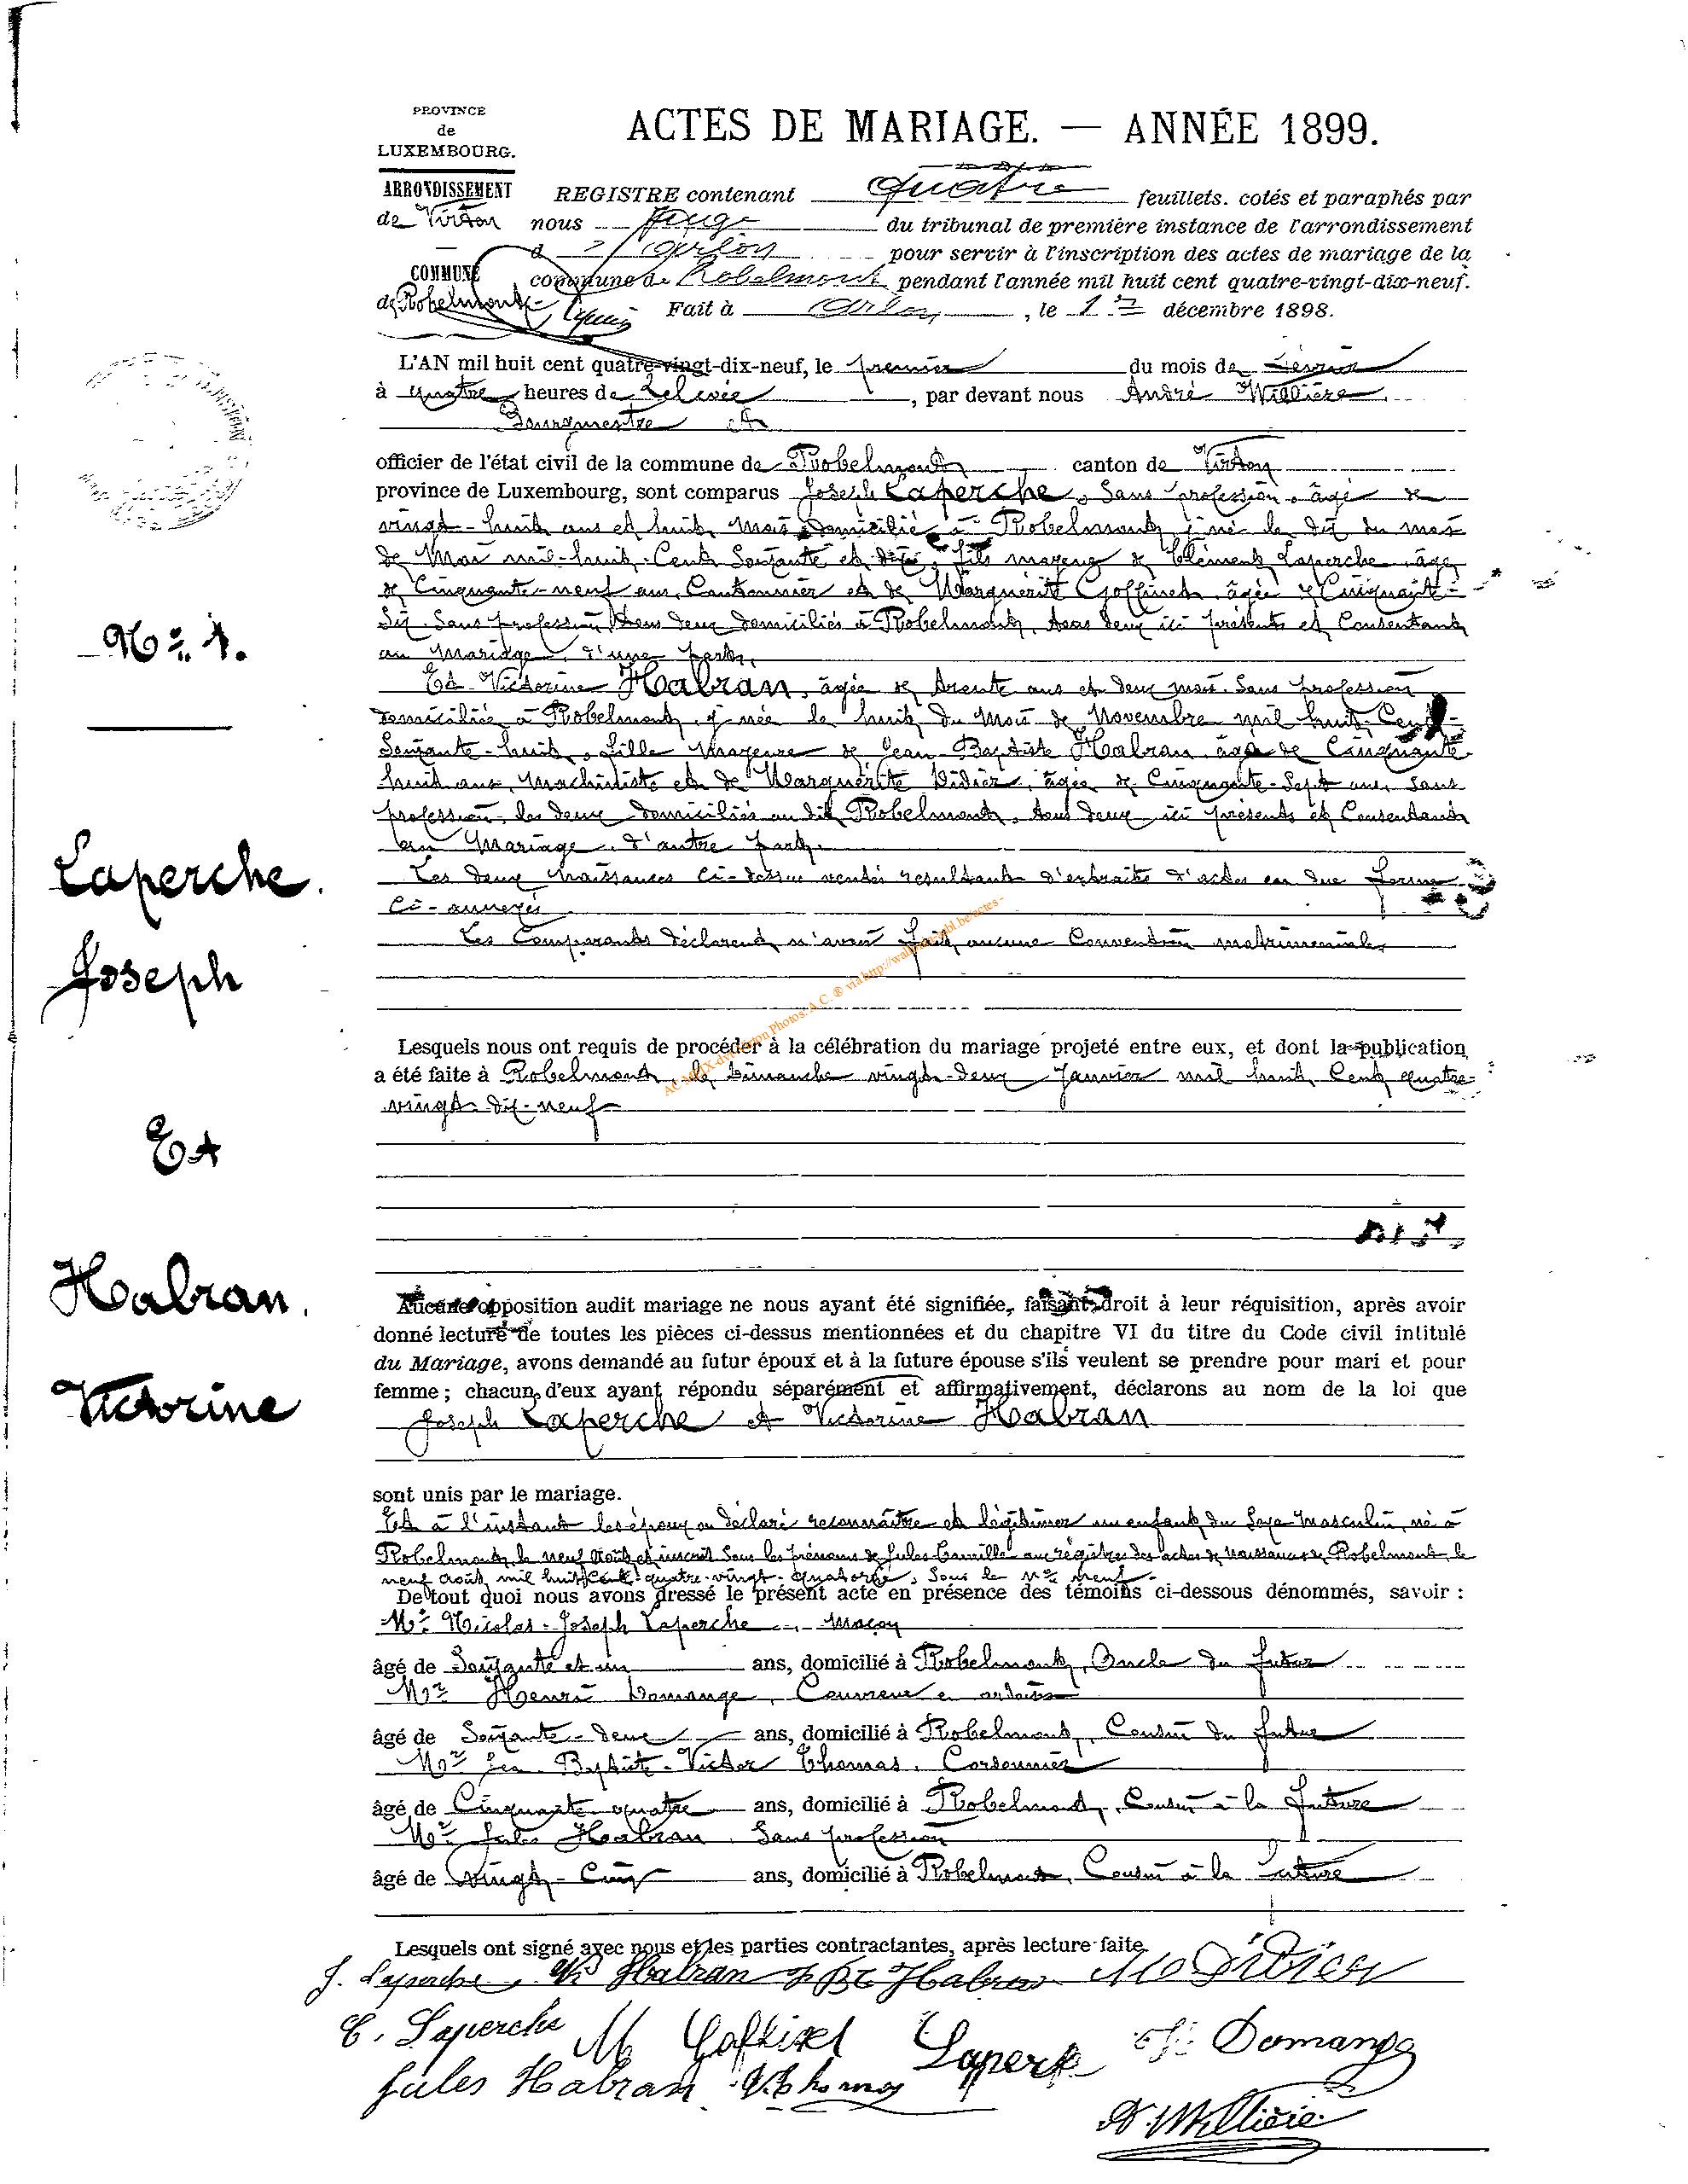 PROVINCE
de
LUXEMBOURG.
ARRONDISSEMENT
de Virton
COMMUNE
de Robelmont
ACTES DE MARIAGE. — ANNÉE 1899.
REGISTRE contenant quatre feuillets. cotés et paraphés par
nous Juge du tribunal de première instance de l'arrondissement
d'Arlon pour servir à l'inscription des actes de mariage de la
commune de Robelmont pendant l'année mil huit cent quatre-vingt-dix-neuf.
Fait à Arlon, le décembre 1898.
L'AN mil huit cent quatre-vingt-dix-neuf, le premier du mois de Février
à quatre heures de relevée, par devant nous André Willière,
Bourgmestre
officier de l'état civil de la commune de Robelmont canton de Virton
province de Luxembourg, sont comparus Joseph Laperche, Sans profession, âgé de
vingt-huit ans et huit mois domicilié à Robelmont, y né le dix du mois
de Mai mil-huit-Cent Soixante et dix, fils majeur de Clément Laperche âgé
de Cinquante-neuf ans, Cantonnier et de Marguerite Goffinet âgée de Cinquante-
Six. Sans profession, tous deux domiciliés à Robelmont, tous deux ici présents et Consentant
au Mariage, d'une part,
Et Victorine Habran, âgée de trente ans et deux mois. Sans profession
domiciliée à Robelmont, y née le huit du Mois de Novembre mil huit-Cent-
Soixante-huit, fille majeure de Jean-Baptiste Habran âgé de Cinquante
huit ans, Machiniste et de Marguerite Didier, âgée de Cinquante-Sept ans, Sans
profession, les deux domiciliés au dit Robelmont, tous deux ici présents et Consentant
au Mariage, d'autre part.
Les deux Naissances Ci-dessus resultant d'extraits d'actes en due forme
Ci-annexés
Les Comparants déclarent n'avoir fait aucune Convention matrimoniale,
AC via http://wallonia-asbl.be/actes-
Lesquels nous ont requis de procéder à la célébration du mariage projeté entre eux, et dont la publication
a été faite à Robelmont, le Dimanche vingt-deux Janvier mil huit Cent quatre-
vingt-dix-neuf
Aucune opposition audit mariage ne nous ayant été signifiée, faisant droit à leur réquisition, après avoir
donné lecture de toutes les pièces ci-dessus mentionnées et du chapitre VI du titre du Code civil intitulé
du Mariage, avons demandé au futur époux et à la future épouse s'ils veulent se prendre pour mari et pour
femme ; chacun d'eux ayant répondu séparément et affirmativement, déclarons au nom de la loi que
Joseph Laperche et Victorine Habran
sont unis par le mariage.
Et à l'instant les époux on déclaré reconnaître et légitimer un enfant du Sexe Masculin, né à
Robelmont, le neuf Août et inscrit Sous les prénoms de Jules Camille aux régistres des actes de Naissances de Robelmont le
neuf Août mil huit Cent quatre-vingt-quatorze, Sous le No neuf.
De tout quoi nous avons dressé le présent acte en présence des témoins ci-dessous dénommés, savoir :
Mr Nicolas-Joseph Laperche, Maçon
âgé de Soixante et un ans, domicilié à Robelmont, Oncle du futur
Mr Henri Domange, Couvreur en ardoises
âgé de Soixante-deux ans, domicilié à Robelmont, Cousin du futur
Mr Jean-Baptiste-Victor Thomas, Cordonnier
âgé de Cinquante quatre ans, domicilié à Robelmont, Cousin à la future
Mr Jules Habran, Sans profession
âgé de vingt-Cinq ans, domicilié à Robelmont, Cousin à la future
Lesquels ont signé avec nous et les parties contractantes, après lecture faite.
J. Laperche Habran J Bte Habran M Didier
C. Laperche M Goffinet Laperche H. Domange
Jules Habran V. Thomas
A. Willière
No 1.
Laperche.
Joseph
Et
Habran.
Victorine